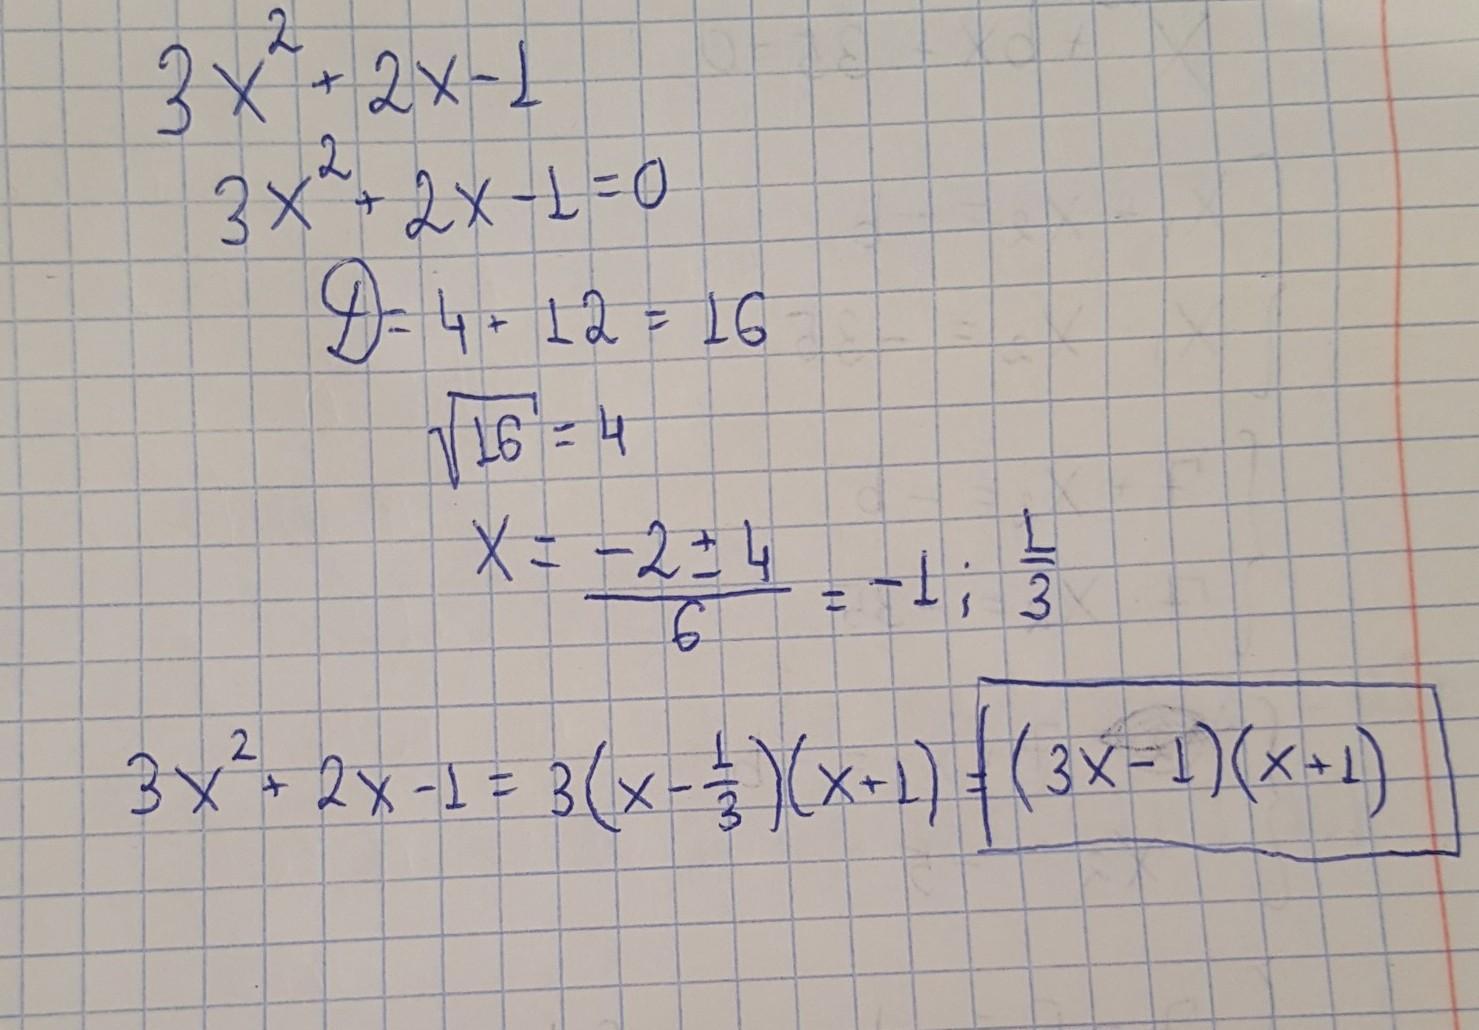 3x² + 2x - 1
3x² + 2x - 1 = 0
D = 4 + 12 = 16
√16 = 4
x = (-2 ± 4)/6 = -1; 1/3
3x² + 2x - 1 = 3(x - 1/3)(x + 1) = (3x - 1)(x + 1)